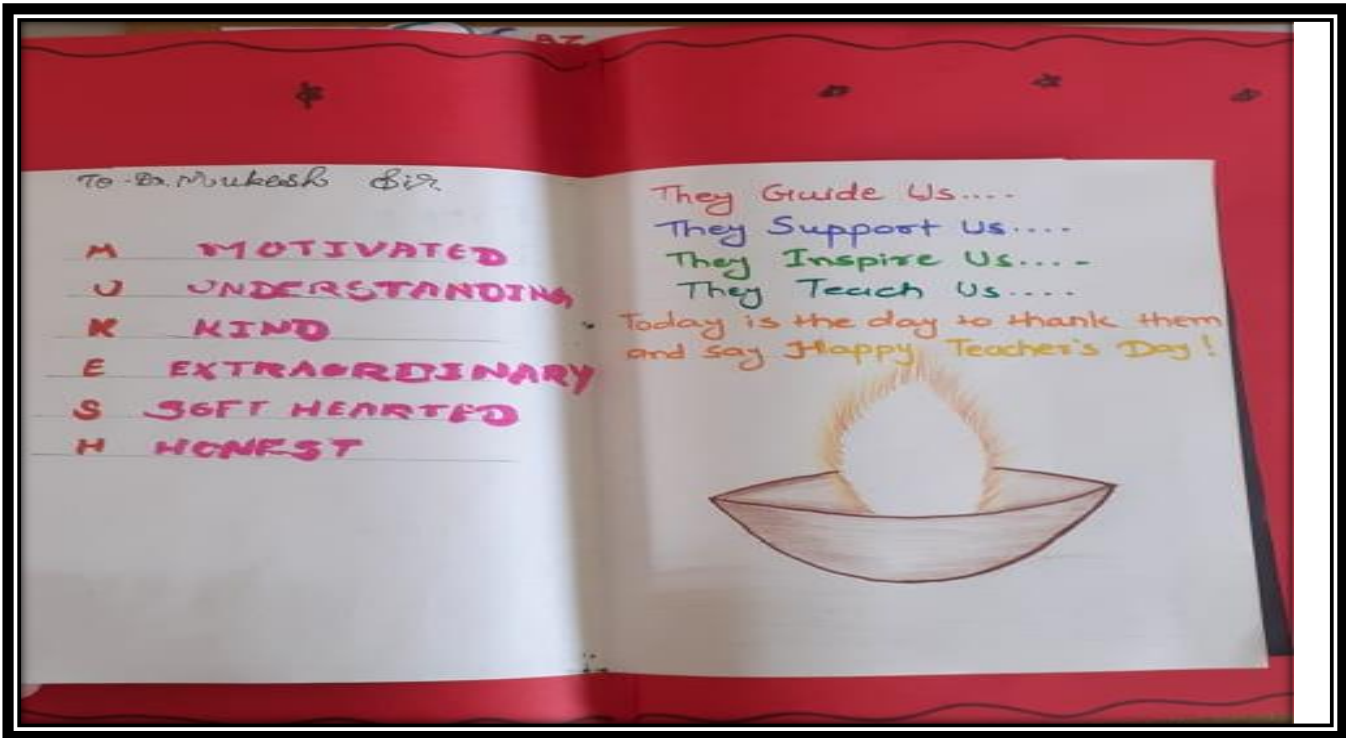 To - Dr. Mukesh Sir
M MOTIVATED
U UNDERSTANDING
K KIND
E EXTRAORDINARY
S SOFT HEARTED
H HONEST
They Guide Us....
They Support Us....
They Inspire Us....
They Teach Us....
Today is the day to thank them
and say Happy Teacher's Day!